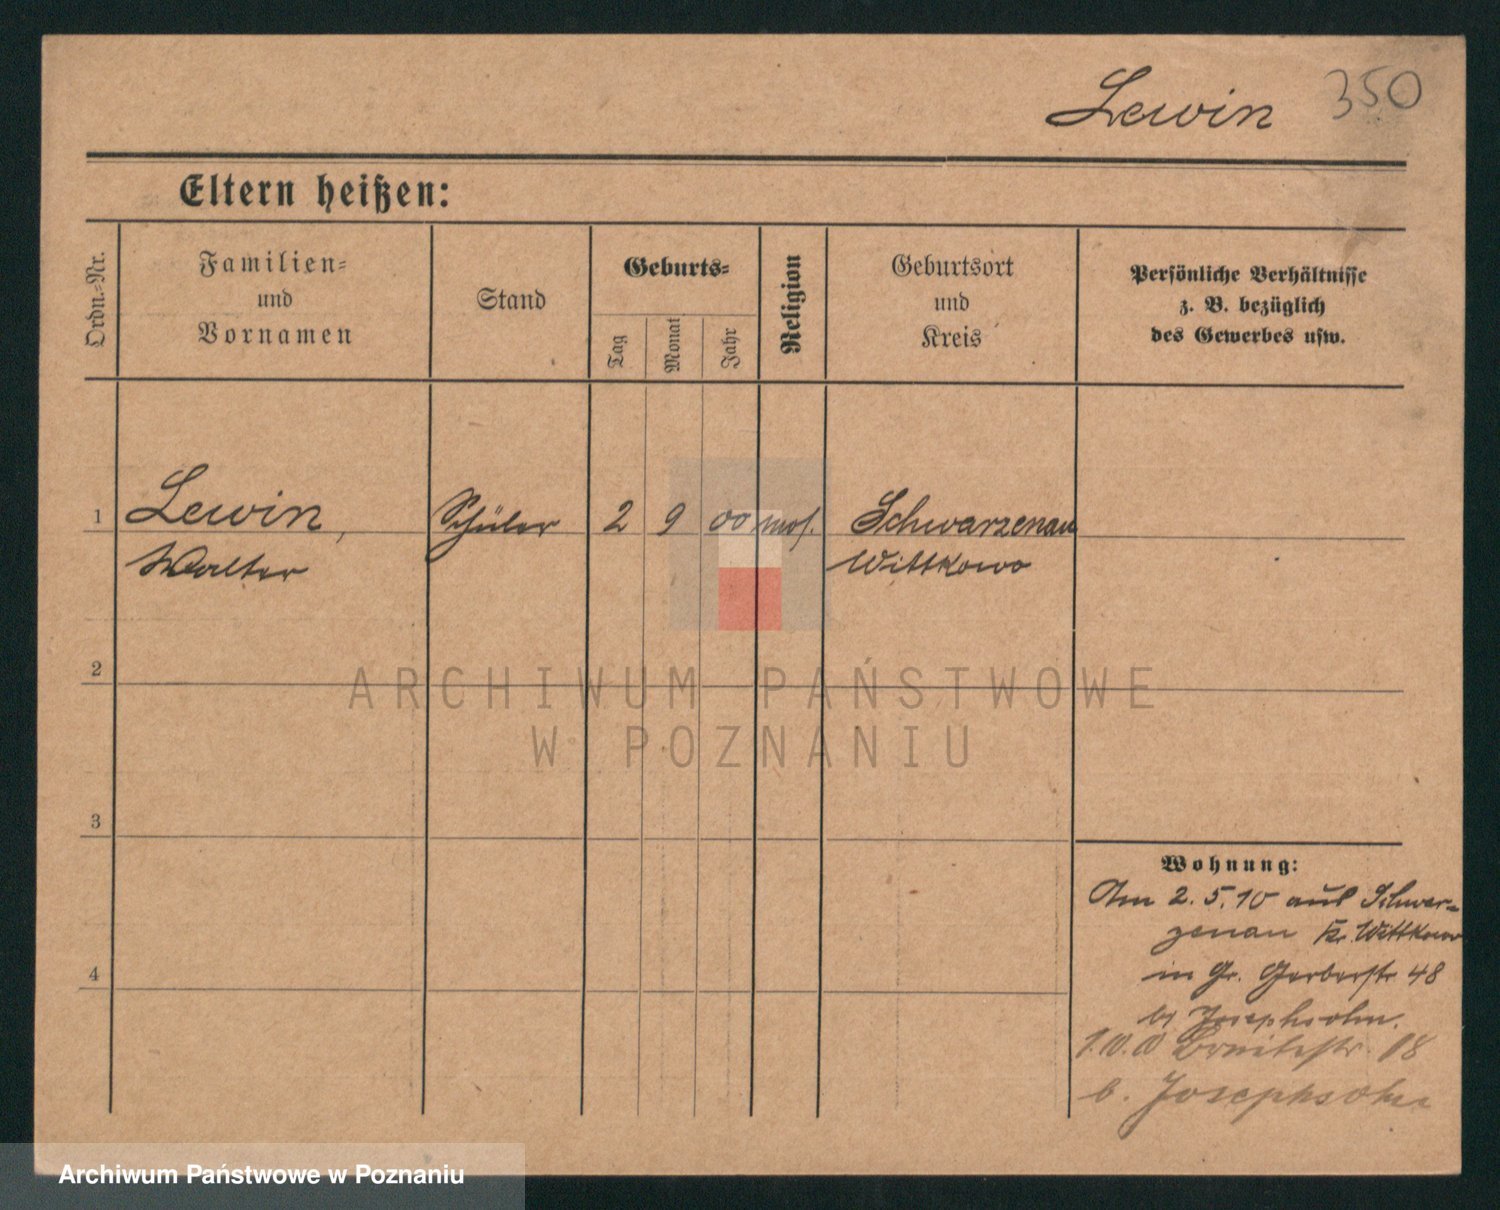 Lewin 350
Eltern heißen:
Ordn.-Nr.
Familien-
und
Vornamen
Stand
Geburts-
Tag
Monat
Jahr
Religion
Geburtsort
und
Kreis
Persönliche Verhältnisse
z. B. bezüglich
des Gewerbes usw.
1 Lewin, Schüler 2 9 00 mos. Schwarzenau
Walter Wittkowo
2
ARCHIWUM PAŃSTWOWE
W POZNANIU
3
4
Wohnung:
Am 2.5.10 aus Schwar-
zenau Kr. Wittkowo
in Gr. Gerberstr 48
bei Josephsohn.
Breitestr. 18
b. Josephsohn
Archiwum Państwowe w Poznaniu